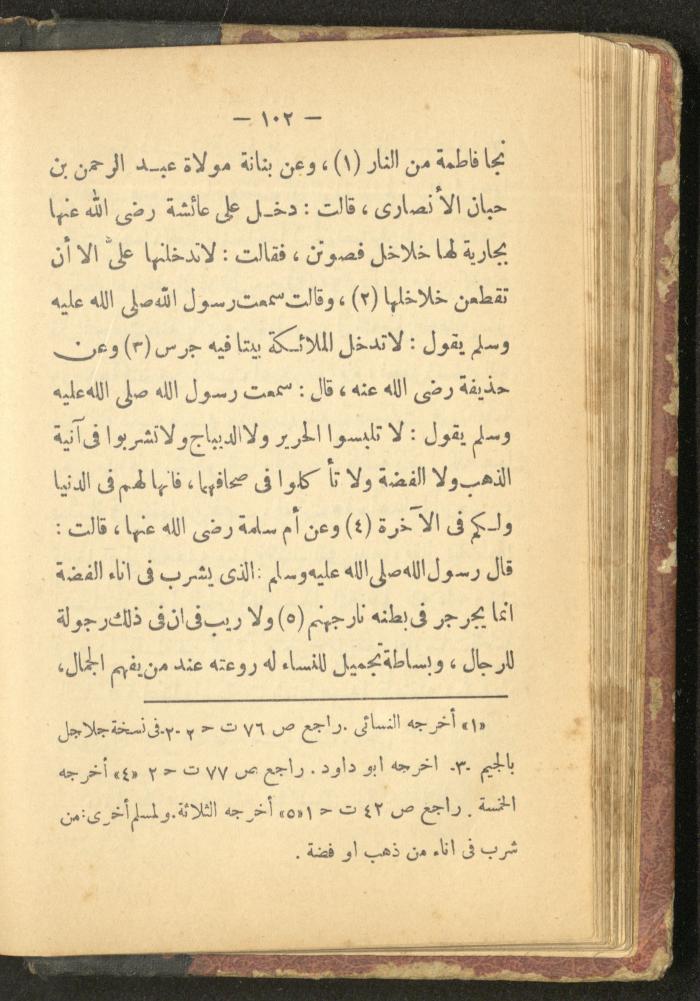 — ١٠٢ —
نجا فاطمة من النار (١) ، وعن بنانة مولاة عبد الرحمن بن
حبان الأنصارى ، قالت : دخل على عائشة رضى الله عنها
بجارية لها خلاخل فصوتن ، فقالت : لاتدخلنها علىَّ الا أن
تقطعن خلاخلها (٢) ، وقالت سمعت رسول الله صلى الله عليه
وسلم يقول : لاتدخل الملائكة بيتا فيه جرس (٣) وعن
حذيفة رضى الله عنه ، قال : سمعت رسول الله صلى الله عليه
وسلم يقول : لا تلبسوا الحرير ولا الديباج ولا تشربوا فى آنية
الذهب ولا الفضة ولا تأكلوا فى صحافهما ، فانها لهم فى الدنيا
ولكم فى الآخرة (٤) وعن أم سلمة رضى الله عنها ، قالت :
قال رسول الله صلى الله عليه وسلم : الذى يشرب فى اناء الفضة
انما يجرجر فى بطنه نار جهنم (٥) ولا ريب فى ان فى ذلك رجولة
للرجال ، وبساطة تجميل للنساء له روعته عند من يفهم الجمال ،
«١» أخرجه النسائى . راجع ص ٧٦ ت ح ٢ -٢- فى نسخة جلاجل
بالجيم -٣- اخرجه ابو داود . راجع ص ٧٧ ت ح ٢ «٤» أخرجه
الخمسة . راجع ص ٤٢ ت ح ١ «٥» أخرجه الثلاثة . ولمسلم أخرى : من
شرب فى اناء من ذهب او فضة .